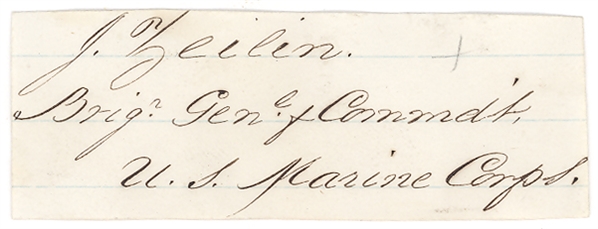 J. Zeilin.
Brigr Genl & Commdt.
U. S. Marine Corps.